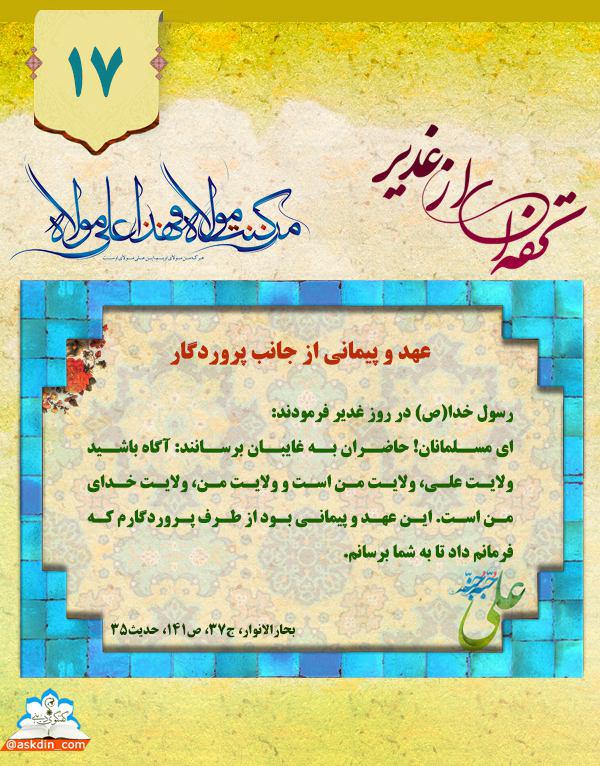 ۱۷
تحفه‌ای از غدیر
من کنت مولاه فهذا علی مولاه
هر که من مولای اویم این علی مولای اوست
عهد و پیمانی از جانب پروردگار
رسول خدا(ص) در روز غدیر فرمودند:
ای مسلمانان! حاضران به غایبان برسانند: آگاه باشید
ولایت علی، ولایت من است و ولایت من، ولایت خدای
من است. این عهد و پیمانی بود از طرف پروردگارم که
فرمانم داد تا به شما برسانم.
علی حبه جنة
بحارالانوار، ج۳۷، ص۱۴۱، حدیث۳۵
@askdin_com